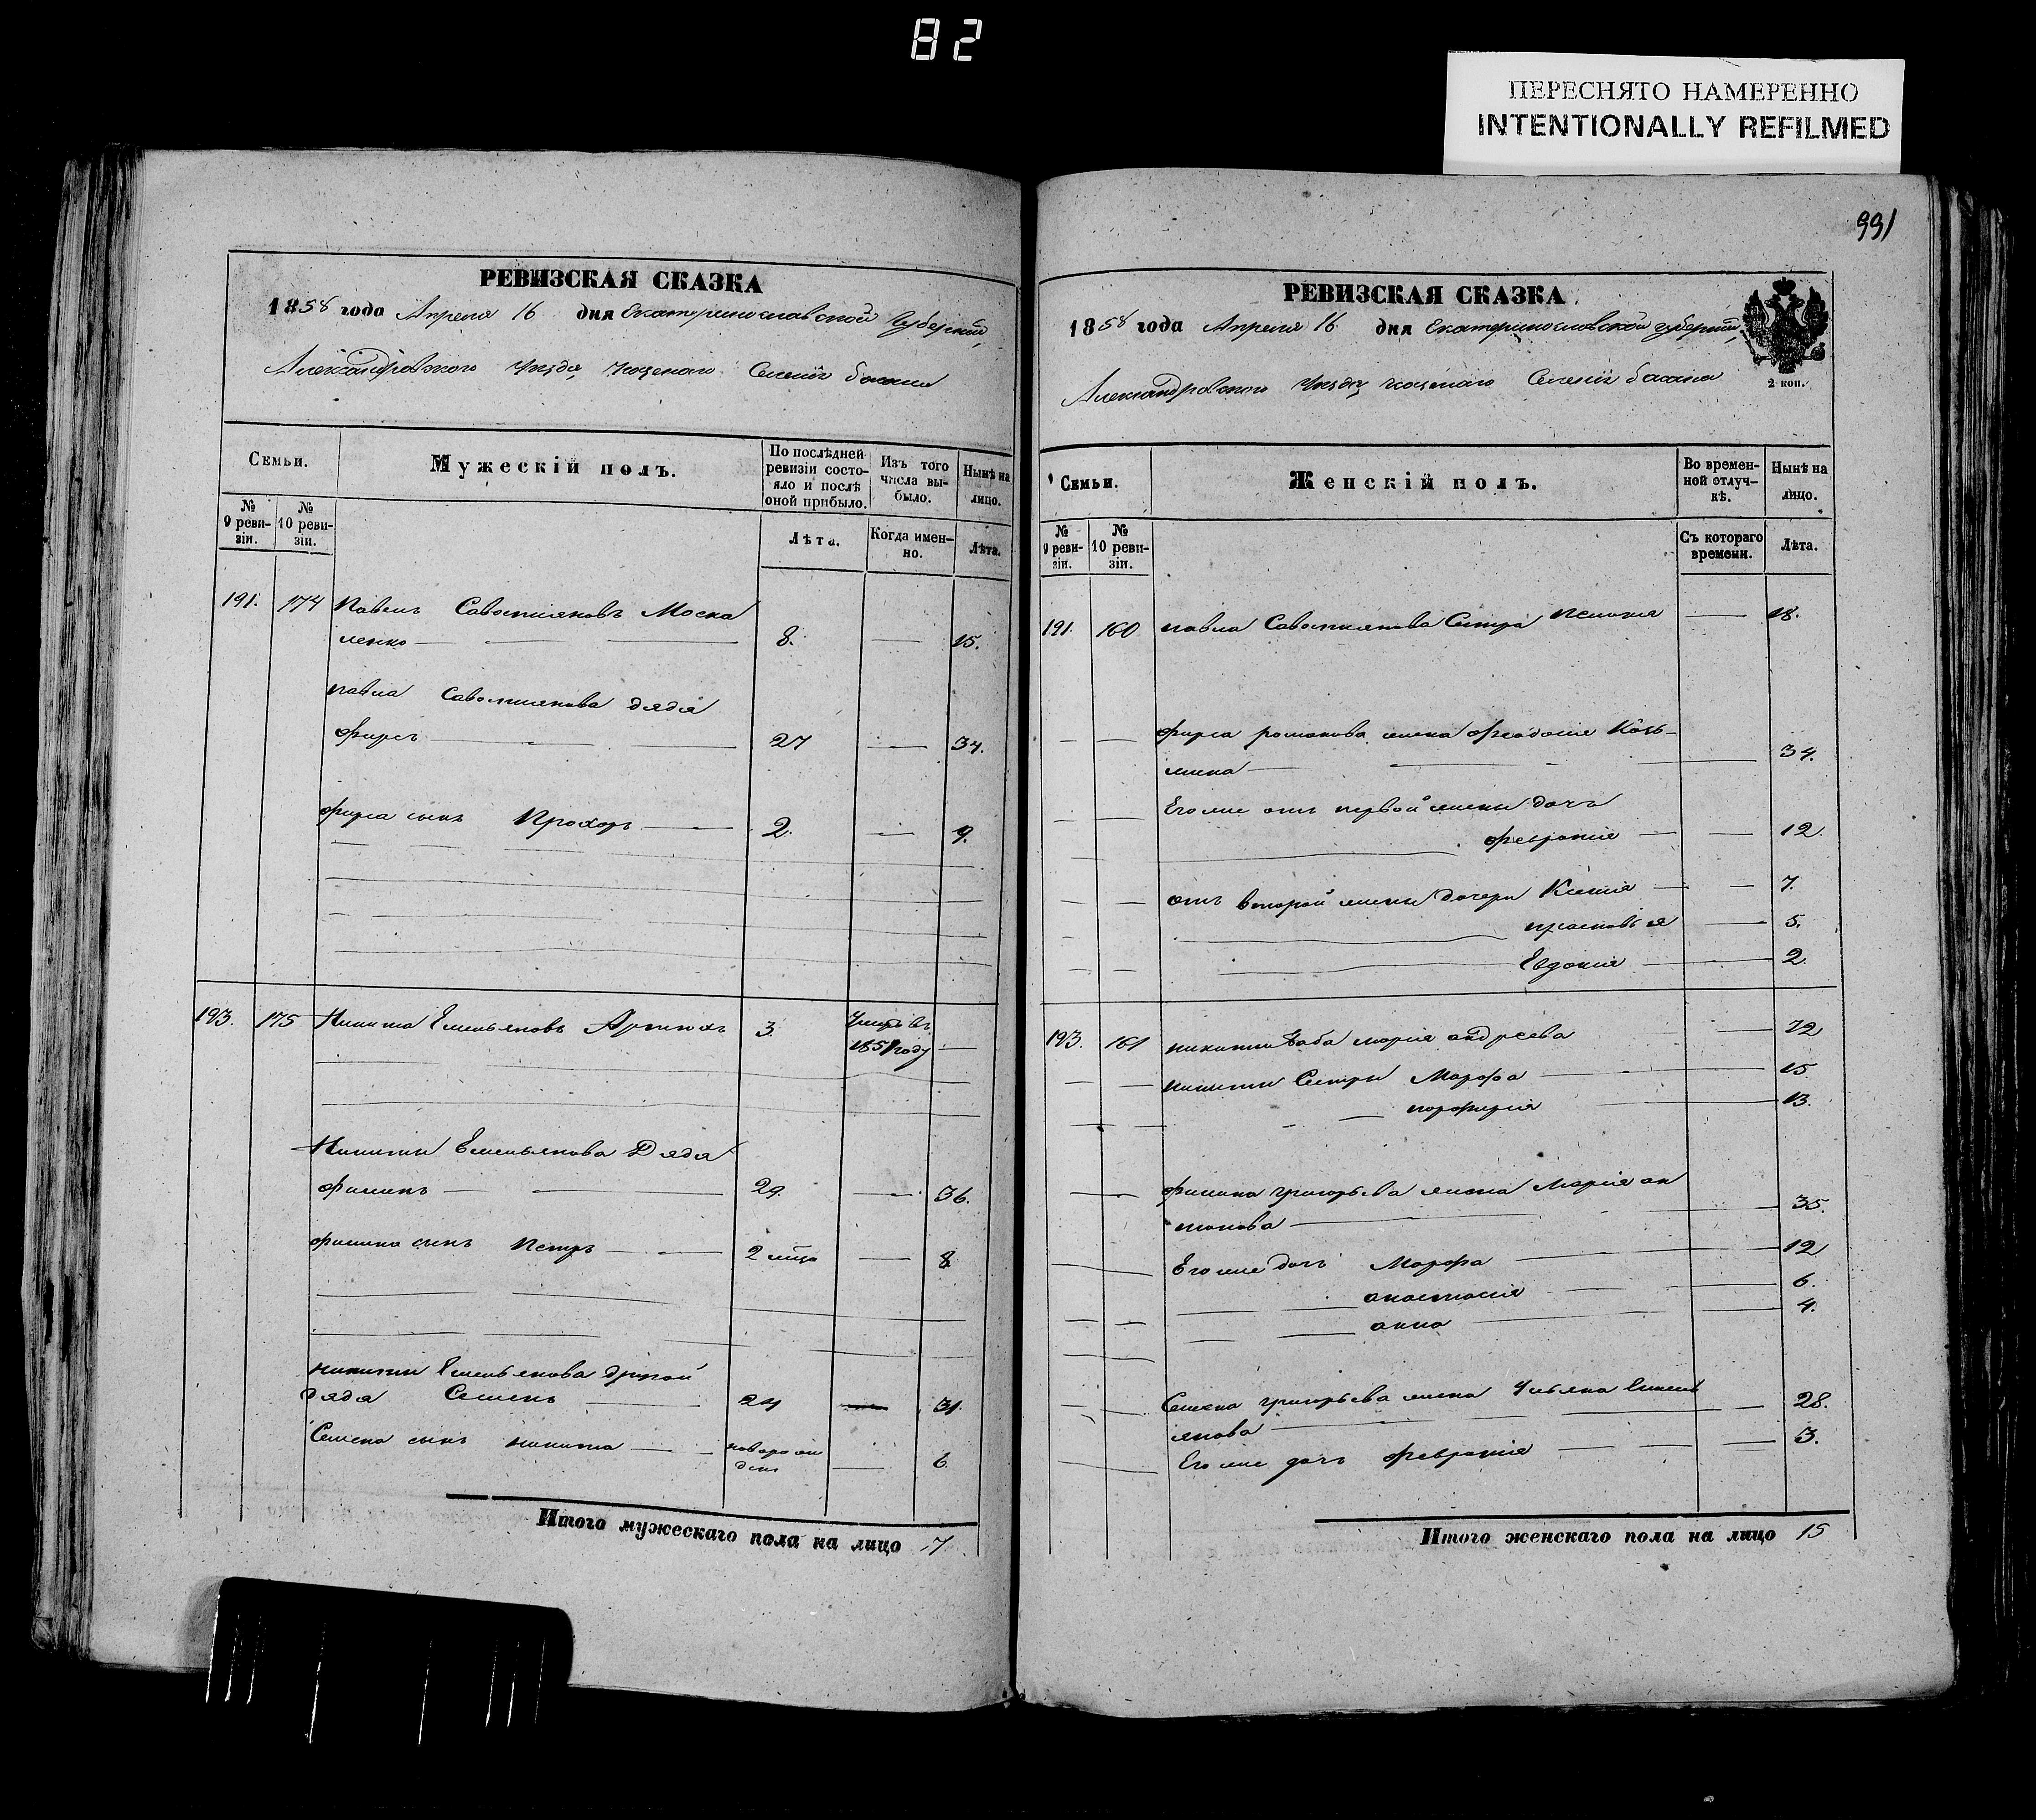 82
ПЕРЕСНЯТО НАМЕРЕННО
INTENTIONALLY REFILMED
991
РЕВИЗСКАЯ СКАЗКА
1858 года Апреля 16 дня Екатеринославской Губернии,
Александровского уезда, казеннаго Селенія
Семьи.
Мужескій полъ.
По послѣдней ревизіи состояло и послѣ оной прибыло.
Изъ того числа выбыло.
Нынѣ на лицо.
№ 9 ревизіи.
№ 10 ревизіи.
Лѣта.
Когда именно.
Лѣта.
191. 174 Павелъ Савостиановъ Моска
ленко 8. 15.
павла Савостианова дядя
фирсъ 27 34.
фирса сынъ Прохоръ 2. 9.
193. 175 Никита Емельяновъ 3. Умеръ въ
1851 году
Никиты Емельянова Дядя
филипъ 29. 36.
филипа сынъ Петръ 2 мѣца 8
никиты Емельянова другой
дядя Семенъ 24 31.
Семена сынъ никита новорож
ден 6
Итого мужескаго пола на лицо 7
РЕВИЗСКАЯ СКАЗКА
1858 года Апреля 16 дня Екатеринославской губерніи,
Александровского уезда казеннаго Селенія
2 коп.
Семьи.
Женскій полъ.
Во временной отлучкѣ.
Нынѣ на лицо.
№ 9 ревизіи.
№ 10 ревизіи.
Съ котораго времени.
Лѣта.
191. 160 павла Савостианова Сестра 18.
фирса романова жена феодосия Козь-
мина 34.
Его же отъ первой жены дочь
феврония 12.
отъ второй жены дочери Ксения 7.
прасковья 5.
Евдокия 2.
193. 161 никиты баба мария андреева 72
никиты Сестры Марфа 15
порфирия 13.
филипа григорьева жена Мария ан
тонова 35.
Его же дочь Марфа 12
анастасия 6.
анна 4.
Семена григорьева жена Ульяна Емель
янова 28.
Его же дочь феврония 3.
Итого женскаго пола на лицо 15